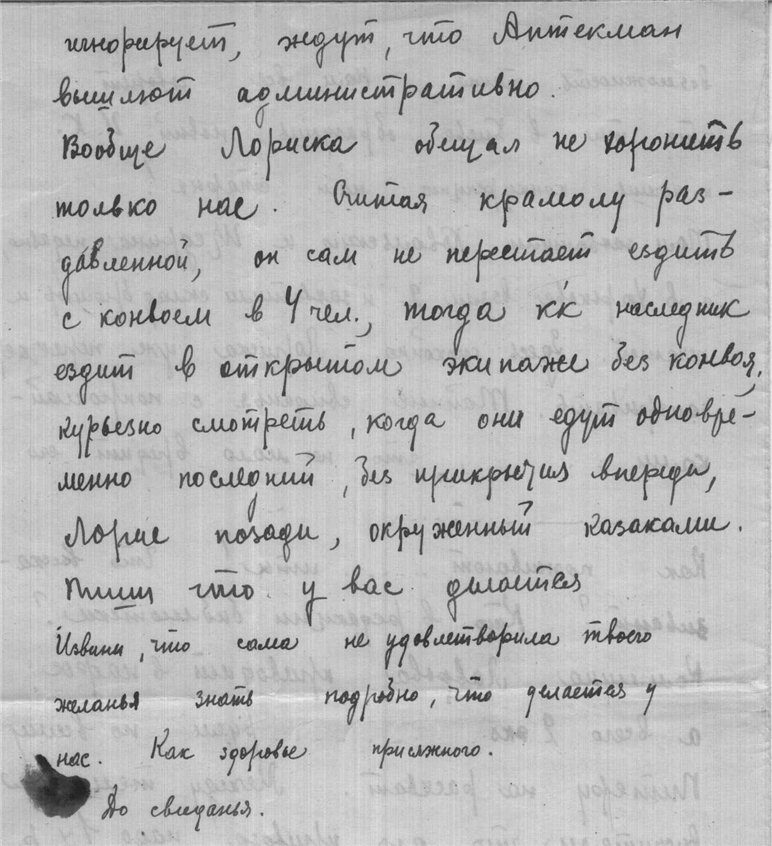 игнорирует, ждут, что Аптекман
вышлют административно.
Вообще Лориска обещал не хоронить
только нас. Считая крамолу раз-
давленной, он сам не перестает ездить
с конвоем в 4 чел., тогда к'к наследник
ездит в открытом экипаже без конвоя,
курьезно смотреть, когда они едут одновре-
менно последний, без прикрытия впереди,
Лорис позади, окруженный казаками.
Пиши что у вас делается
Извини, что сама не удовлетворила твоего
желанья знать подробно, что делается у
нас. Как здоровье присяжного.
До свиданья.